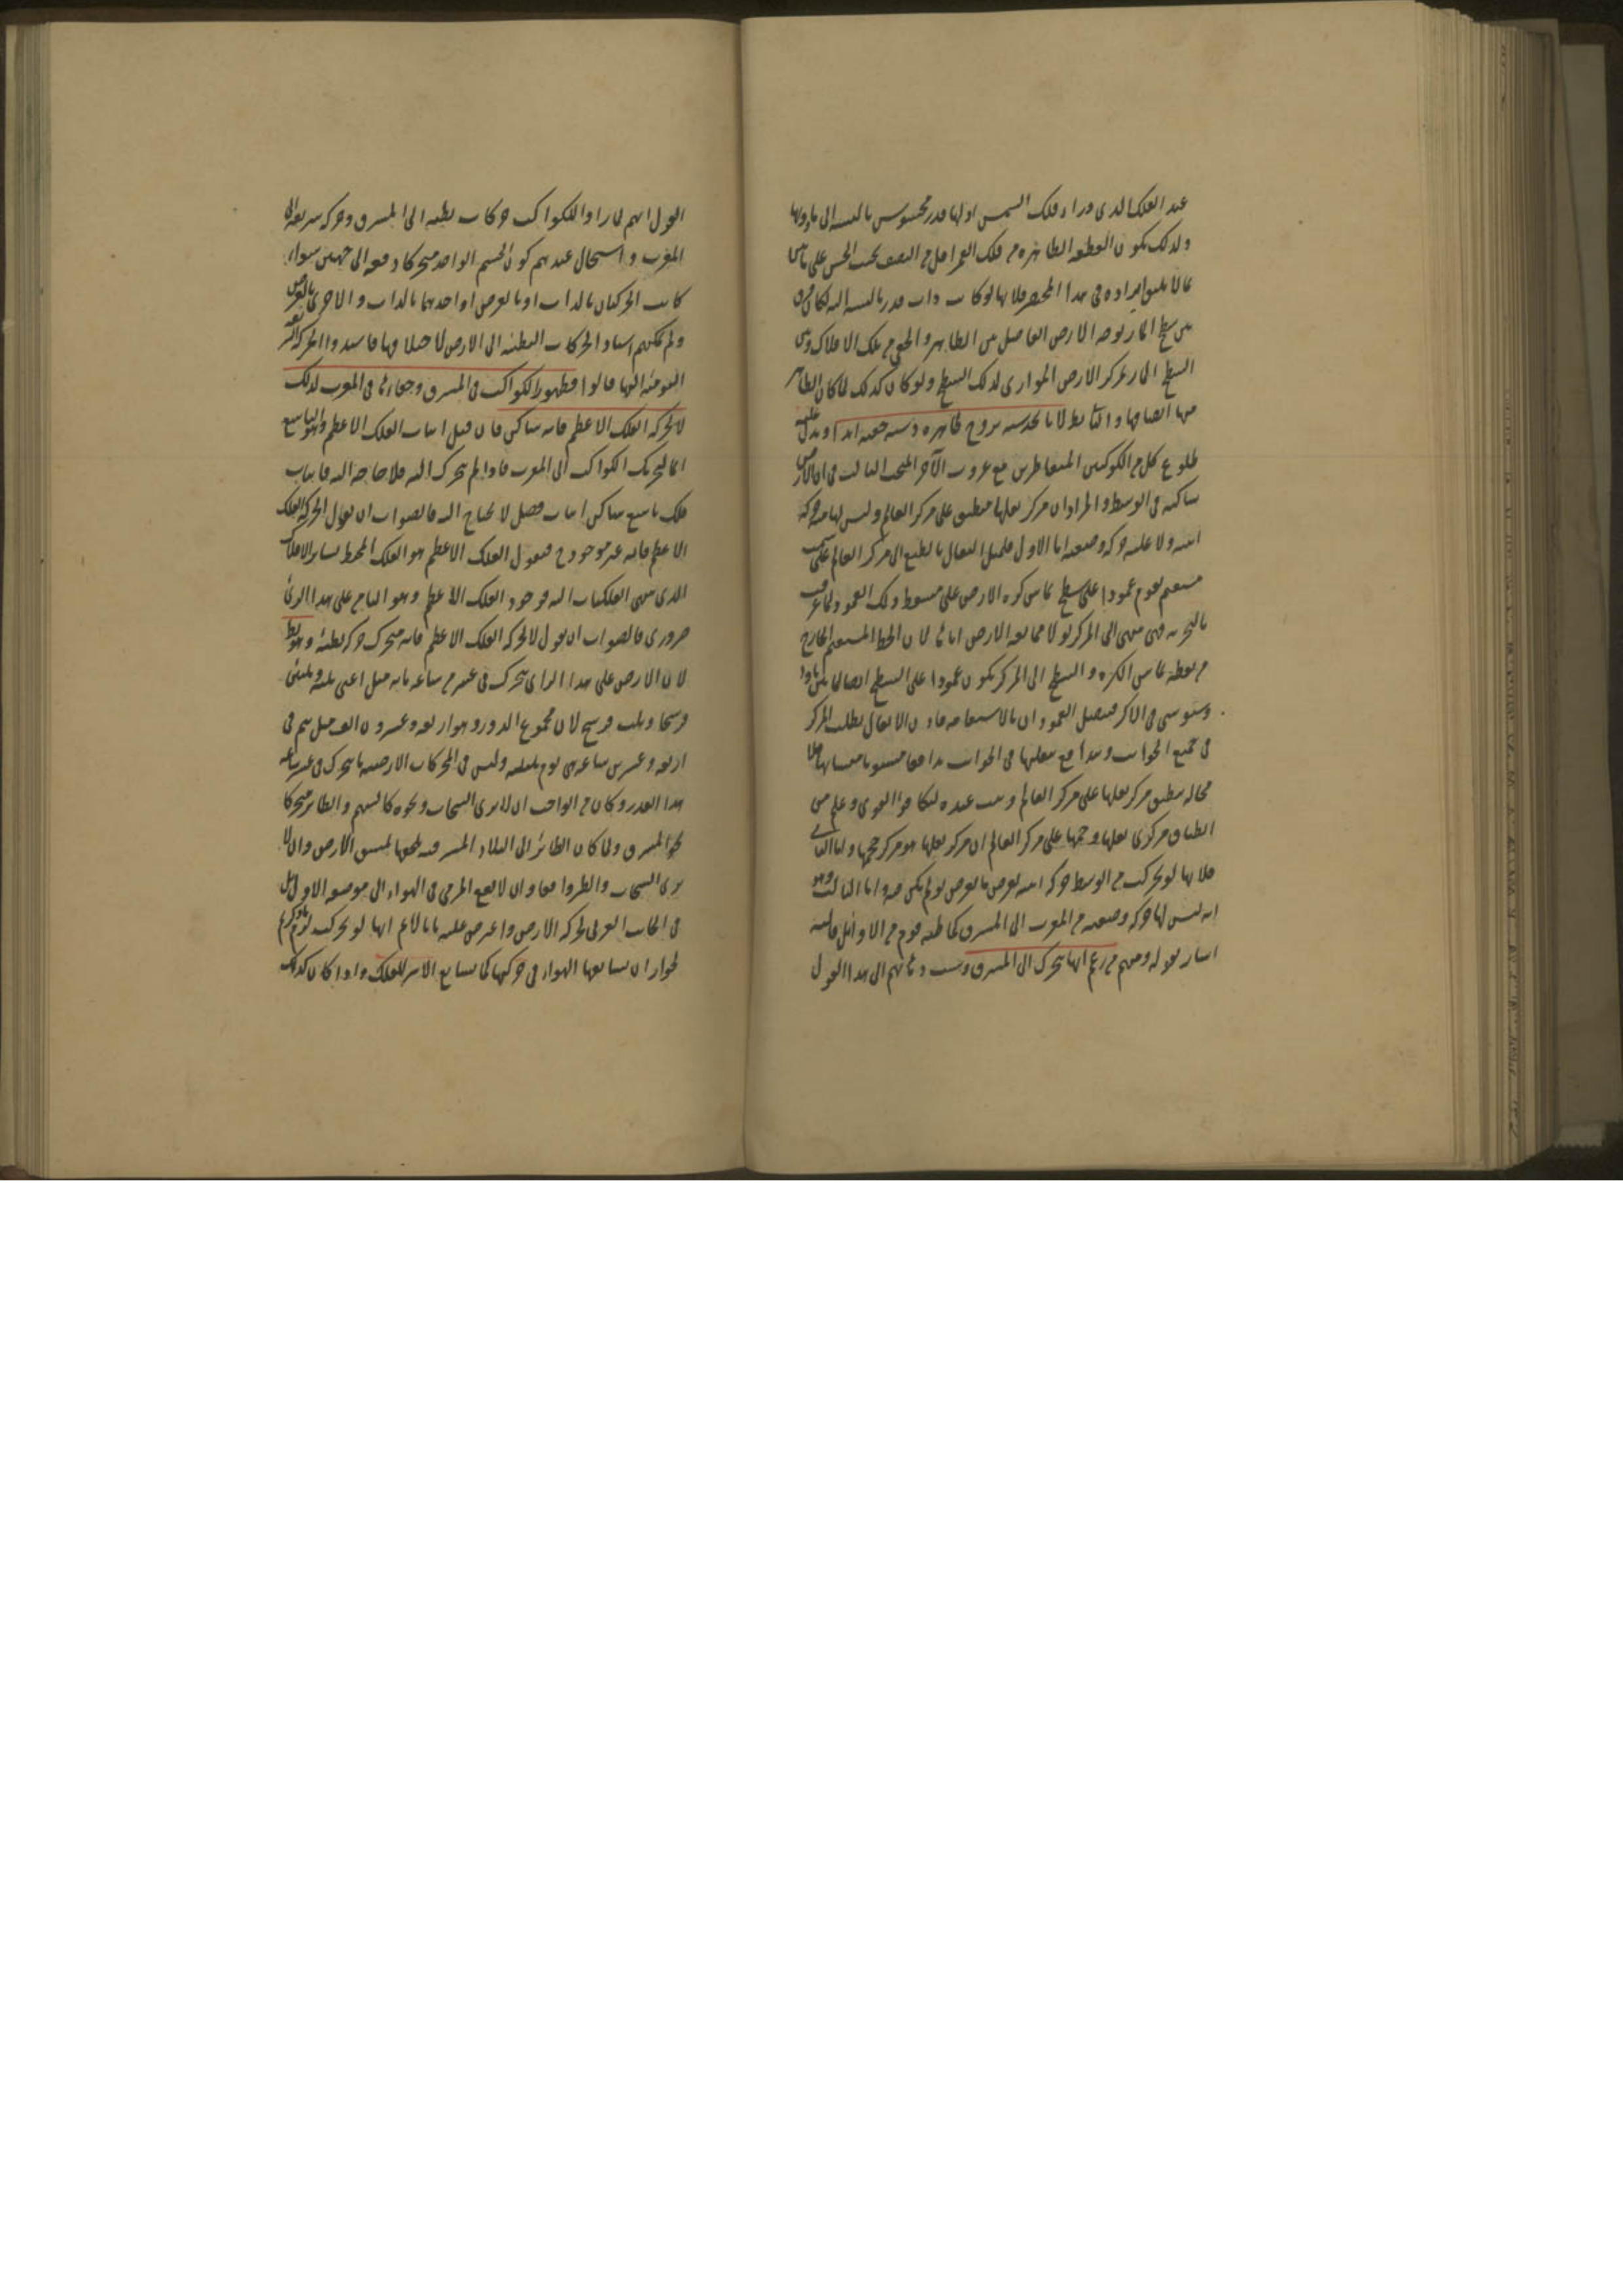 عند الفلك الذي وراء فلك الشمس اولها قدر محسوس بالنسبة الى ما دونها
ولذلك يكون القطعة الظاهرة من فلك القمر اقل من النصف بحسب الحس على ما بين
مما لا يليق ايراده في هذا المختصر فلانها لو كانت ذات قدر بالنسبة اليه لكان فرق
بين سطح المار بوجه الارض الفاصل بين الظاهر والخفي من تلك الافلاك وبين
السطح المار بمركز الارض الموازي لذلك السطح ولو كان كذلك لما كان الظاهر
منها انصافها والتالي باطل لانا نجد ستة بروج ظاهرة وستة خفية ابدا ويدل عليه
طلوع كل من الكوكبين المتقاطرين مع غروب الآخر المبحث الثالث في ان الارض
ساكنة في الوسط والمراد ان مركز ثقلها منطبق على مركز العالم وليس لها منه حركة
اينية ولا عليه حركة وضعية اما الاول فلميل الثقال بالطبع الى مركز العالم على سمت
مستقيم يقوم عمودا على سطح يماس كرة الارض على مسقط ذلك العمود لما عرف
بالتجربة فهي تنتهي الى المركز لولا ممانعة الارض اياها لان الخط المستقيم الخارج
من نقطة تماس الكرة والسطح الى المركز يكون عمودا على السطح
في الاكر فيتصل العمودان بالاستقامة فاذن الاثقال يطلب المركز
في جميع الجوانب وتدافع بثقلها في الجوانب تدافعا متساويا
محالة ينطبق مركز ثقلها على مركز العالم ويثبت عنده لتكافؤ القوى وعلم من
انطباق مركزي ثقلها وحجمها على مركز العالم ان مركز ثقلها هو مركز حجمها واما الثاني
فلانها لو تحركت من الوسط حركة اينية لعرض ما يعرض لو لم يكن فيه واما الثالث وهو
انه ليس لها حركة وضعية من المغرب الى المشرق كما ظنه قوم من الاوائل فاليه
اشار بقوله ومنهم من زعم انها تتحرك الى المشرق وسبب ذهابهم الى هذا القول
القول انهم لما راوا للكواكب حركات بطيئة الى المشرق وحركة سريعة الى
المغرب واستحال عندهم كون الجسم الواحد متحركا دفعة الى جهتين سواء
كانت الحركتان بالذات او بالعرض او احديهما بالذات والاخرى بالعرض
ولم يمكنهم اسناد الحركات البطيئة الى الارض لاختلافها فاسندوا الحركة السريعة
اليومية اليها قالوا فظهور الكواكب في المشرق وخفاؤها في المغرب لذلك
لا لحركة الفلك الاعظم فانه ساكن فان قيل اثبات الفلك الاعظم وهو التاسع
انما لتحريك الكواكب الى المغرب فاذا لم يتحرك اليه فلا حاجة اليه فاثبات
فلك تاسع ساكن اثبات فضل لا يحتاج اليه فالصواب ان يقول لا لحركة الفلك
الاعظم فانه غير موجود ح فنقول الفلك الاعظم هو الفلك المحيط بسائر الافلاك
الذي تنتهي الفلكيات اليه فوجود الفلك الاعظم وهو الثامن على هذا الرأي
ضروري فالصواب ان يقول لا لحركة الفلك الاعظم فانه متحرك حركة بطيئة وهو باطل
لان الارض على هذا الراي تتحرك في عشر من ساعة مائة ميل اعني ثلثة وثلثين
فرسخا وثلث فرسخ لان مجموع الدور وهو اربعة وعشرون الف ميل يتم في
اربعة وعشرين ساعة هي يوم بليلته وليس في المحركات الارضية ما يتحرك في عشر ساعة
هذا القدر وكان من الواجب ان لا يرى السحاب ونحوه كالسهم والطائر متحركا
نحو المشرق ولما كان الطائر الى البلاد المشرقية يلحقها لسبق الارض وان لا
يرى السحاب والطير واقفا وان لا يقع المرمي في الهواء الى موضعه الاول بل
في الجانب الغربي لحركة الارض واعترض عليه بانا لا نم انها لو تحركت لزم ما ذكرتم
لجواز ان يشايعها الهواء في حركتها كما يشايع الاثير للفلك واذا كان كذلك